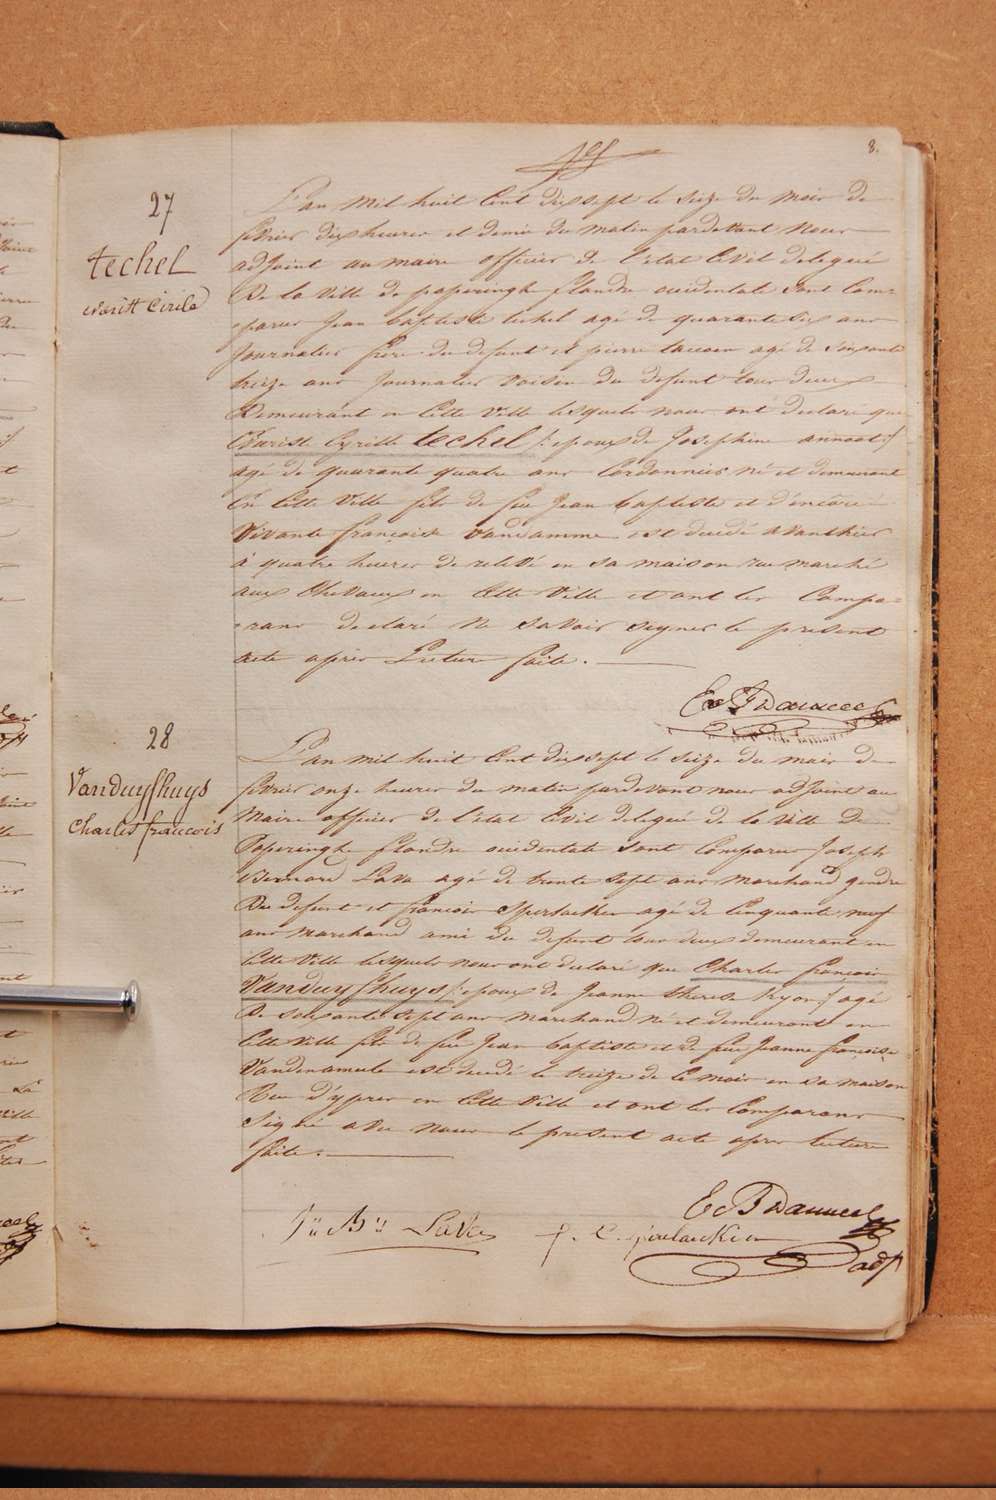 8.
27
techel
evarist Cirile
L'an mil huit Cent dixsept le seize du mois de
fevrier dix heures et demie du matin pardevant Nous
adjoint au maire officier de l'etat Civil delegué
De la Ville de poperinghe flandre occidentale sont Com=
=parus Jean baptiste techel agé de quarante six ans
Journalier frere du defunt et pierre agé de soixante
treize ans Journalier Voisin du defunt tous deux
Demeurant en Cette Ville lesquels nous ont declaré que
Evariste Cyrille techel /: epoux de Josephine annoot :/
agé de quarante quatre ans Cordonnier né et demeurant
En Cette Ville fils de feu Jean baptiste et d'encore
Vivante françoise Vandamme est decedé avanthier
à quatre heures de relevé en sa maison rue marché
aux Chevaux en Cette Ville et ont les Compa=
=rans declaré Ne savoir signer le present
acte après Lecture faite.
28
Vanduyfhuys
Charles francois
L'an mil huit Cent dixsept le seize du mois de
fevrier onze heures du matin pardevant nous adjoint au
Maire officier de l'etat Civil delegué de la Ville de
Poperinghe flandre occidentale sont Comparus Joseph
Bernard Lava agé de trente sept ans Marchand gendre
Du defunt et francois agé de Cinquante neuf
ans Marchand ami du defunt tous deux demeurant en
Cette Ville lesquels nous ont declaré que Charles francois
Vanduyfhuys /: epoux de Jeanne therese Ryon :/ agé
De soixante sept ans Marchand Né et demeurant en
Cette Ville fils de feu Jean baptiste et de feue Jeanne françoise
est decedé le treize de Ce mois en sa maison
Rue d'ypres en Cette Ville et ont les Comparans
Signé avec Nous le present acte apres lecture
faite.
Lava
adj